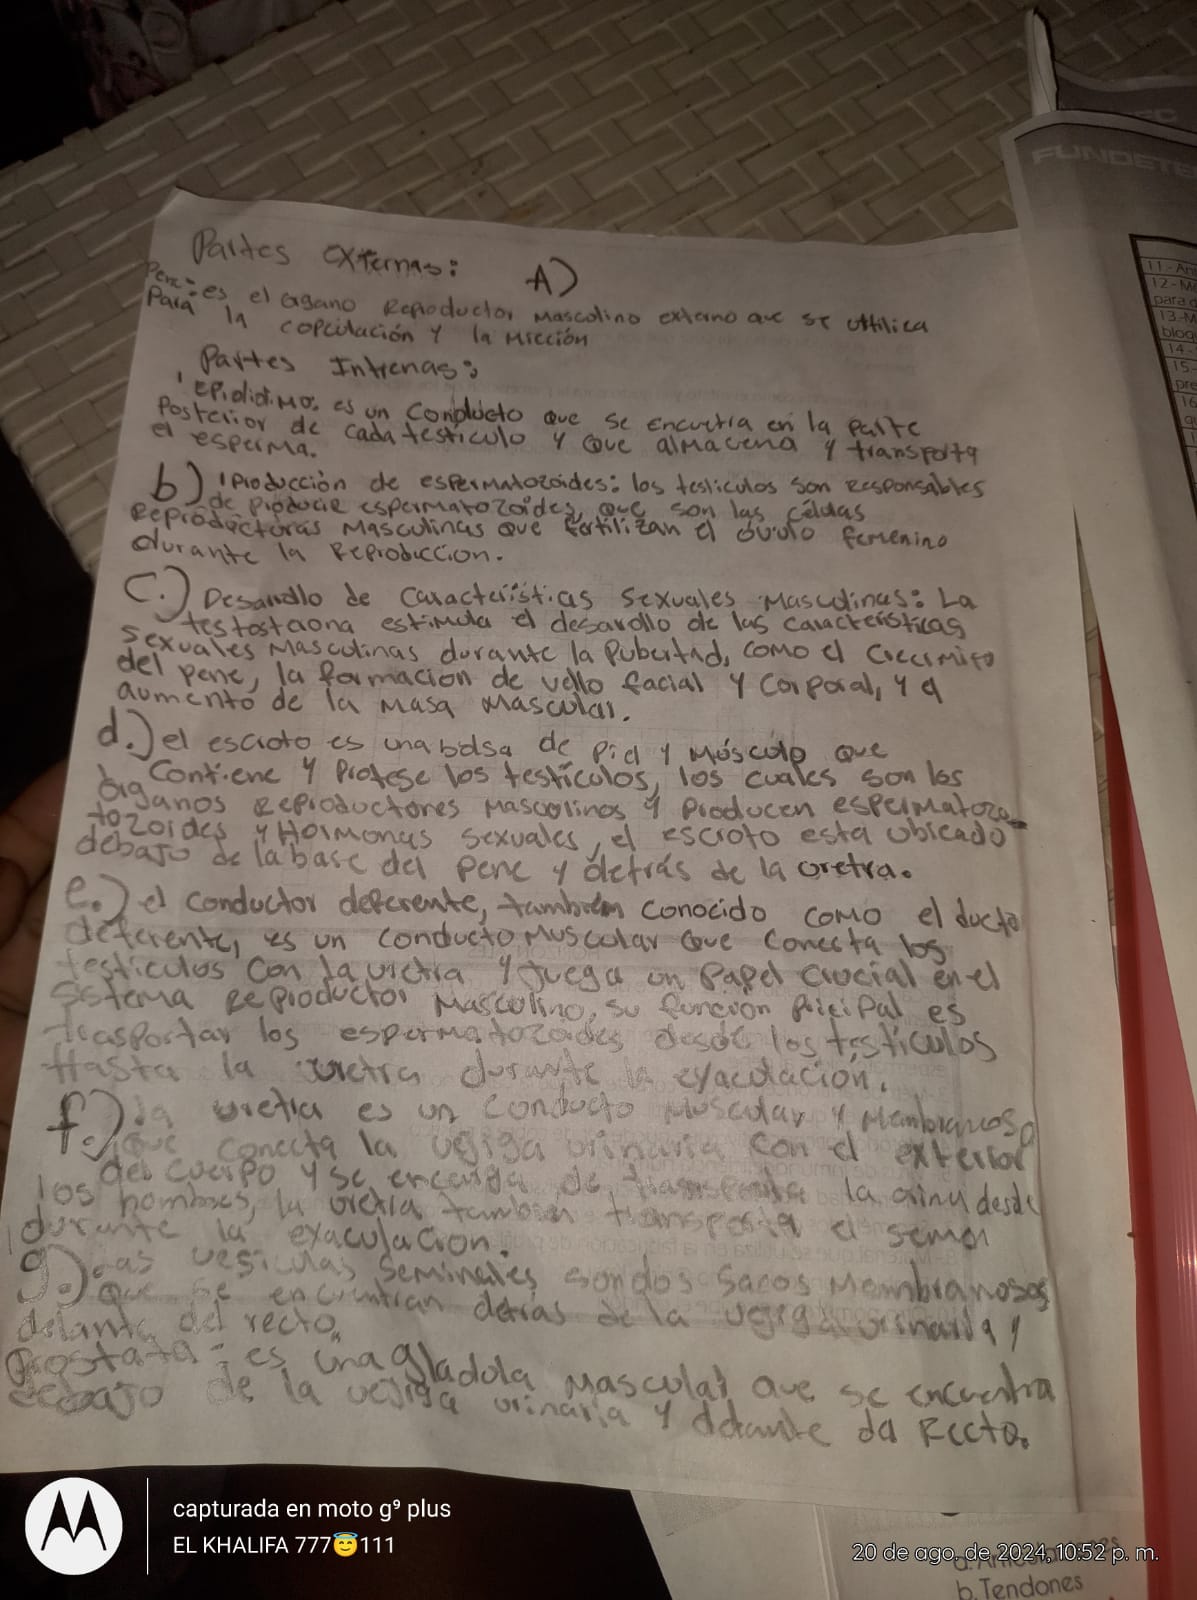 Partes externas: A)
Pene: es el órgano Reproductor Mascolino externo que se uttilica
Para la copculación y la Micción
Partes Intrenas:
Epididimo: es un Conducto que se encuetra en la parte
Posterior de cada testículo y que almacena y transporta
el esperma.
b) Producción de espermatozoides: los testiculos son Responsables
de producir espermatozoides, que son las células
Reproductoras Masculinas que fertilizan el óvulo femenino
durante la Reproduccion.
C.) Desarollo de Caracteristicas Sexuales Masculinas: La
testosterona estimula el desarollo de las caracteristicas
sexuales Masculinas durante la Pubertad, como el
del pene, la formacion de vello facial y corporal, y el
aumento de la Masa Mascular.
d.) el escroto es una bolsa de piel y Músculo que
Contiene y Protese los testículos, los cuales son los
órganos Reproductores Mascolinos y Producen espermatozo
tozoides y Hormonas sexuales, el escroto esta ubicado
debajo de la base del pene y detrás de la uretra.
e.) el conductor deferente, también conocido como el ducto
deferente, es un conducto Muscular que conecta los
testiculos con la uretra y juega un papel crucial en el
sistema Reproductor Masculino, su función pricipal es
trasportar los espermatozoides desde los testículos
Hasta la uretra durante la eyaculacion.
f.) la uretra es un conducto Muscular y Membranoso
que conecta la vejiga urinaria con el exterior
del cuerpo y se encarga de transporta la orina desde
los hombres, la uretra tambien transporta el semen
durante la exaculacion.
g.) las vesiculas seminales son dos sacos Membranosos
que se encuentran detrás de la vejiga urinaria y
delante del recto.
Prostata: es una gladola Mascular que se encuentra
debajo de la vejiga urinaria y delante del Recto.
FUNDETE
12-M
para
13-M
bloq
14-
15-
pre
16
capturada en moto g⁹ plus
EL KHALIFA 777😇111
20 de ago. de 2024, 10:52 p. m.
b. Tendones